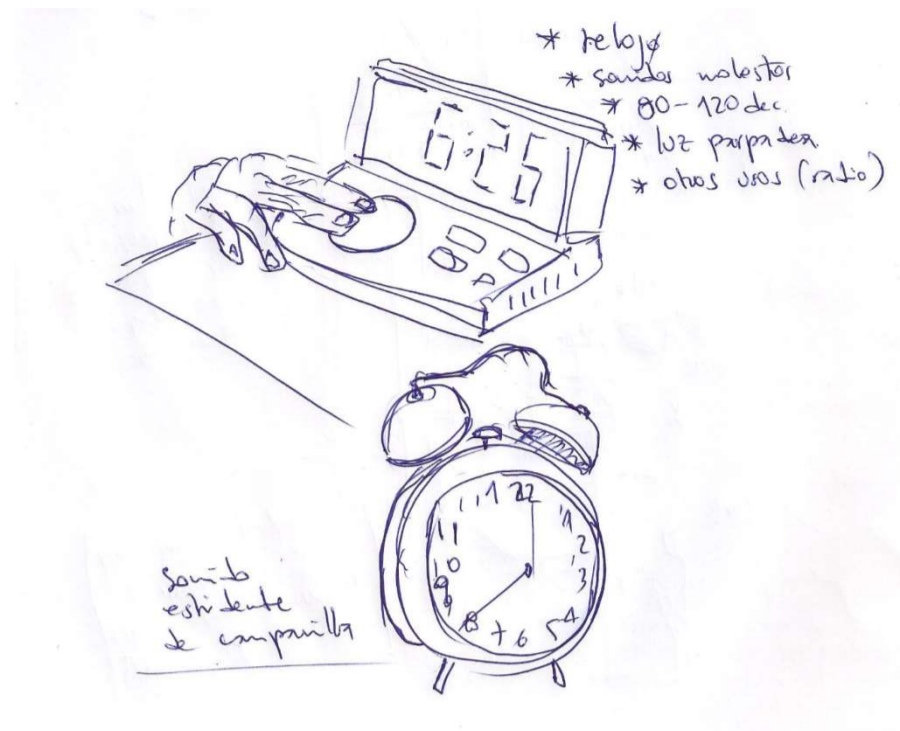 * reloj
* sonidos molestos
* 80-120 dec.
* luz parpadea
* otros usos (radio)
6:25
12
1
2
3
4
5
6
7
8
9
10
11
sonido
estridente
de campanilla